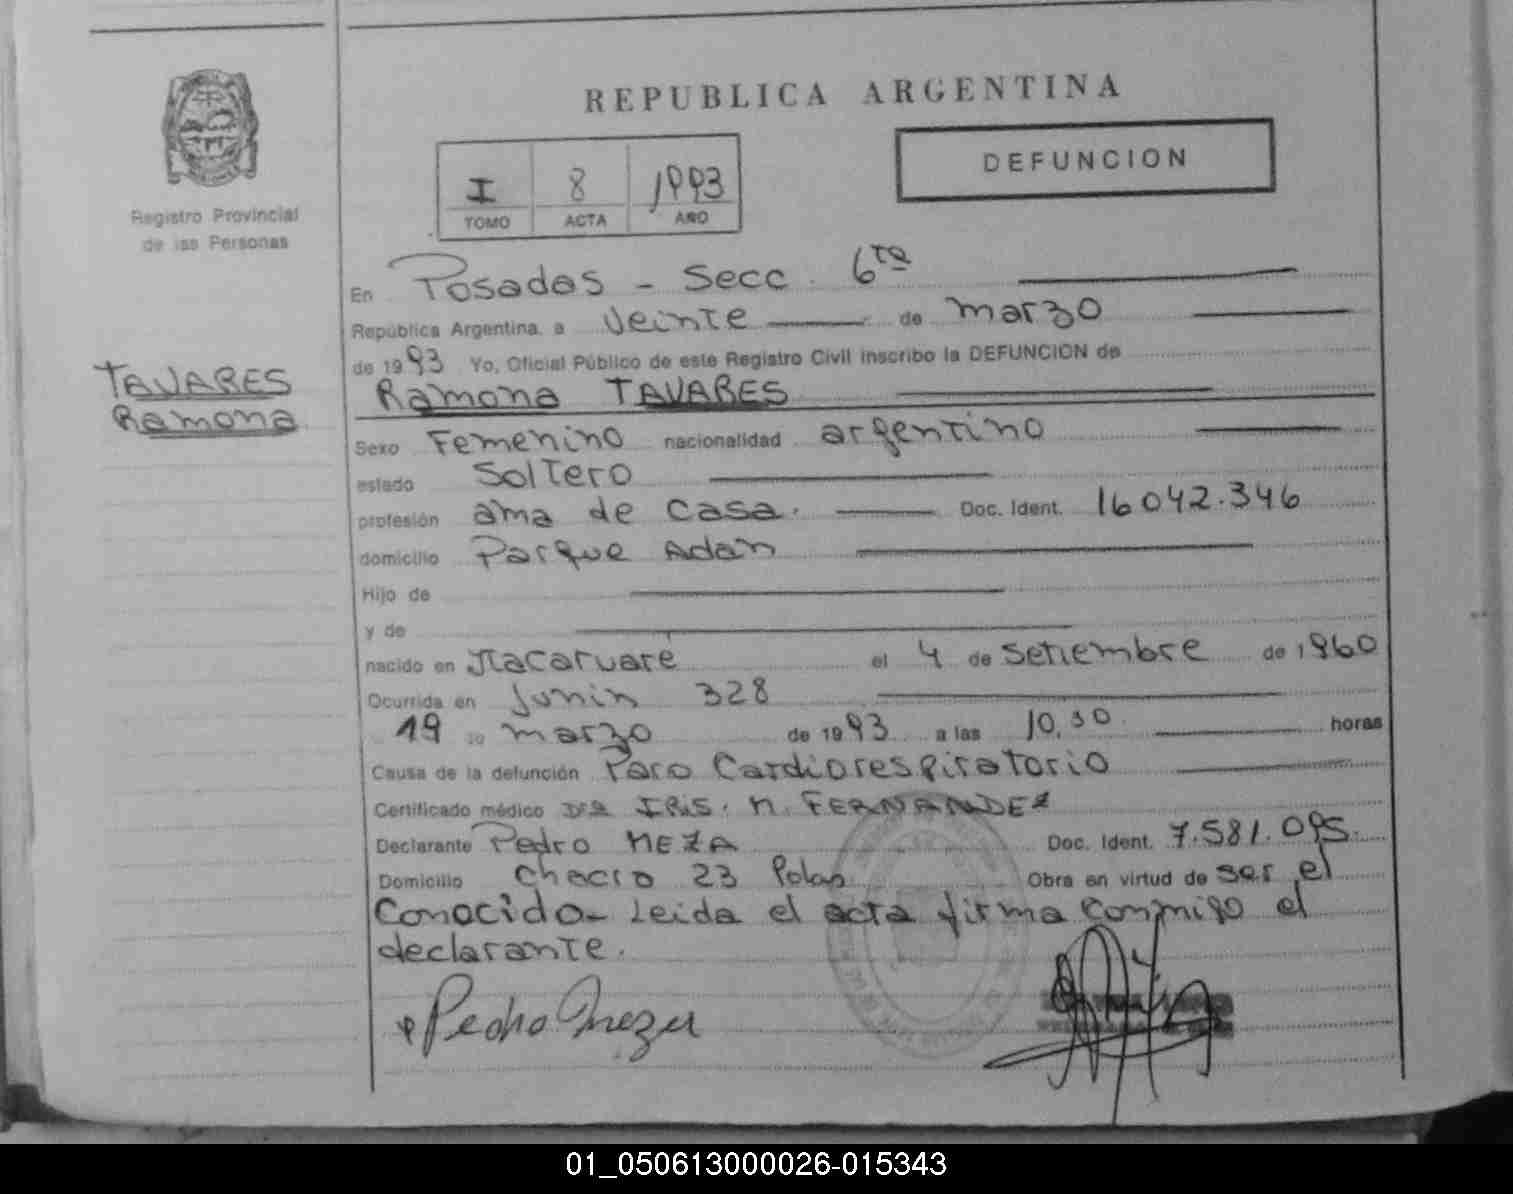 REPUBLICA ARGENTINA
DEFUNCION
I 8 1993
TOMO ACTA AÑO
Registro Provincial
de las Personas
TAVARES
Ramona
En Posadas - Secc. 6ta
República Argentina. a veinte de marzo
de 1993 Yo, Oficial Público de este Registro Civil inscribo la DEFUNCION de
Ramona TAVARES
Sexo Femenino nacionalidad argentino
estado Soltero
profesión ama de casa. Doc. Ident. 16042.346
domicilio Parque Adan
Hijo de
y de
nacido en Itacaruare el 4 de Setiembre de 1960
Ocurrida en Junin 328
19 de marzo de 1993 a las 10,30 horas
Causa de la defunción Paro Cardiorespiratorio
Certificado médico Dra IRIS. N. FERNANDEZ
Declarante Pedro MEZA Doc. Ident. 7.581.095.
Domicilio Chacra 23 Obra en virtud de ser el
Conocido- Leida el acta firma conmigo el
declarante.
Pedro Meza
01_050613000026-015343